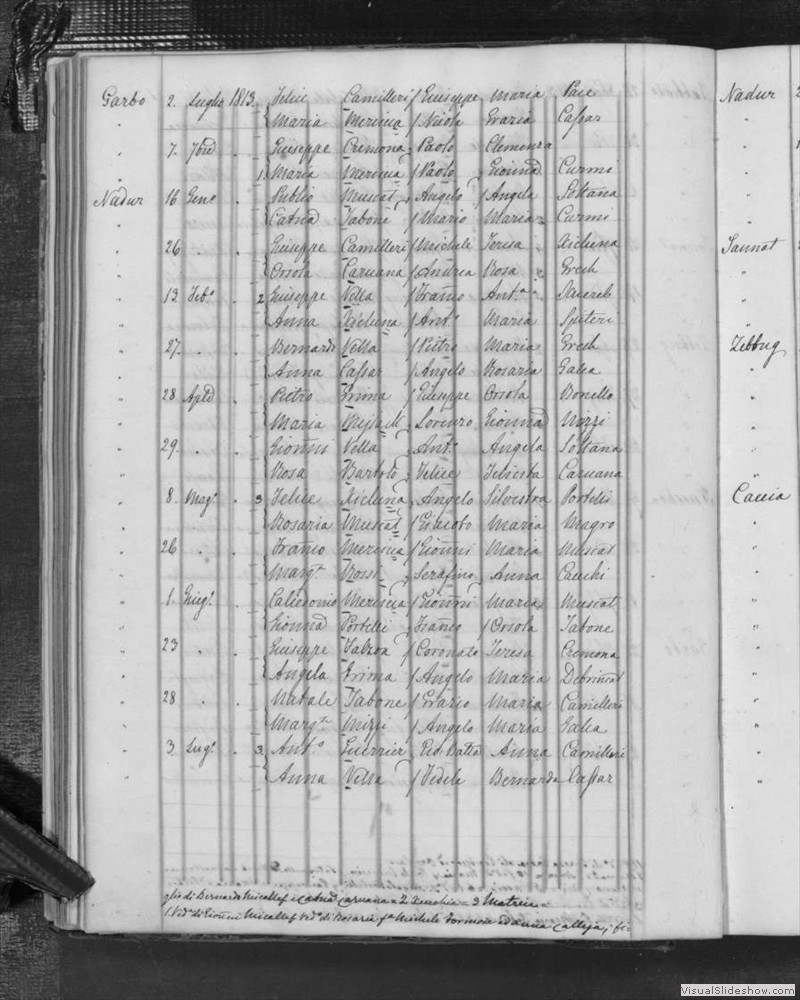 Garbo 2. Luglio 1813. Felice Camilleri / Giuseppe Maria Pace
" Maria Mercieca / Nicola Grazia Cassar
" 7. 7bre . Giuseppe Cremona Paolo Clemenza
" 1. Maria Mercieca / Paolo Gionna Curmi
Nadur 16 Geno . Publio Muscat Angelo / Angela Soltana
" Catna Tabone / Mario Maria Curmi
" 26 . . Giuseppe Camilleri / Michele Teresa Xicluna
" Orsola Caruana / Andrea Rosa Grech
" 13. Feb.o . 2 Giuseppe Vella / Franco Ant.a Xuereb
" Anna Xicluna / Ant.o Maria Spiteri
" 27. . . Bernardo Vella / Pietro Maria Grech
" Anna Cassar / Angelo Rosaria Galea
" 28 Aple . Pietro Grima / Giuseppe Orsola Bonello
" Maria Lorenzo Gionna Mizzi
" 29. . . Gionni Vella Ant.o Angela Soltana
" Rosa Bartolo Felice Felicita Caruana
" 8. Mag.o . 3 Felice Xicluna Angelo Silvestra Portelli
" Rosaria Muscat / Maria Magro
" 26 . . Franco Mercieca / Gionni Maria Muscat
" Marg.ta Rossi Serafino Anna Cacchi
" 1. Giug.o . Calcedonio Mercieca / Gionni Maria Muscat
" Gionna Portelli Franco / Orsola Tabone
" 23 . . Giuseppe Falzon / Coronato Teresa Cremona
" Angela Grima / Angelo Maria Debrincat
" 28 . . Natale Tabone / Grazio Maria Camilleri
" Marg.ta Mizzi / Angelo Maria Galea
" 3. Lug.o . 3 Ant.o Guerrier Gio Batta Anna Camilleri
" Anna Vella / Fedele Bernarda Cassar
glio di Bernardo Micallef e Catna Caruana = 2 Xeuchia = 3 Matrice =
1. Ved.a di Gionni Micallef Ved.o di Rosaria f.a Michele Formosa ed Anna Calleja; fi
Nadur
"
"
"
Sannat
"
"
Zebbug
"
"
Caccia
"
"
VisualSlideshow.com